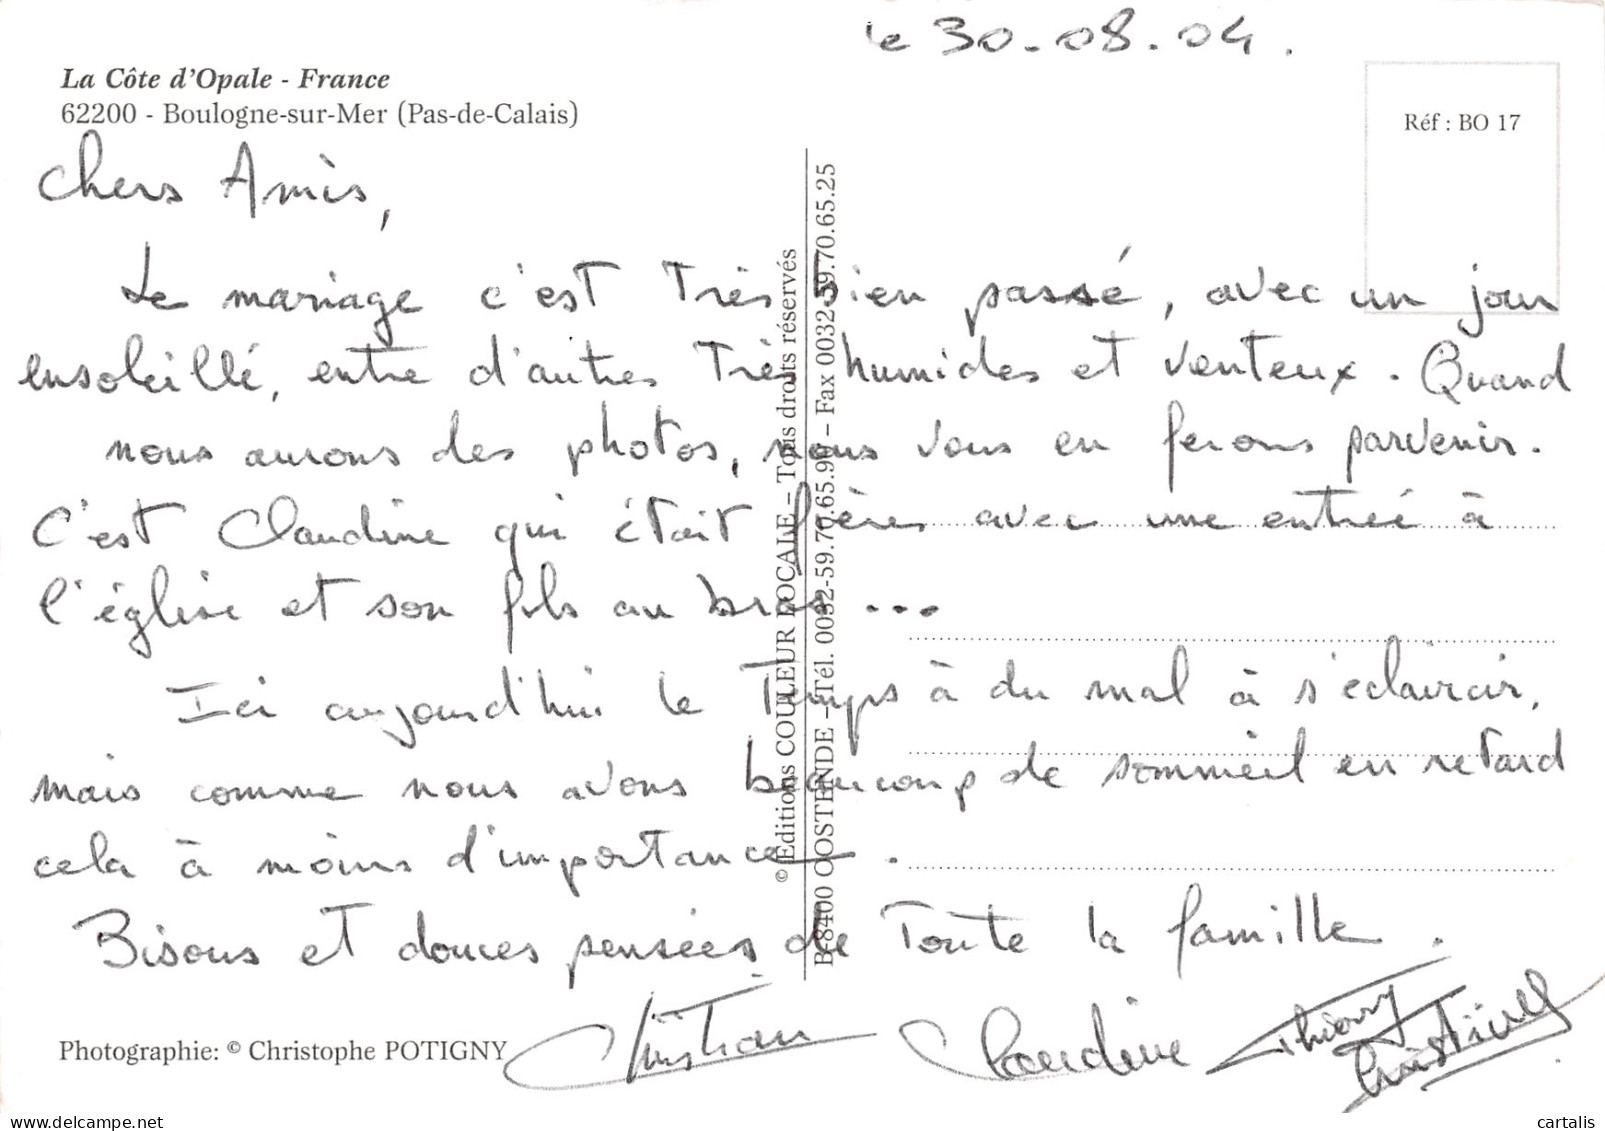 le 30.08.04.
La Côte d'Opale - France
62200 - Boulogne-sur-Mer (Pas-de-Calais)
Réf : BO 17
Chers Amis,
Le mariage c'est Très bien passé, avec un jour
ensoleillé, entre d'autres Très humides et venteux. Quand
nous aurons des photos, nous vous en ferons parvenir.
C'est Claudine qui était fière avec une entrée à
l'église et son fils au bras ...
Ici aujourd'hui le Temps à du mal à s'éclaircir,
mais comme nous avons beaucoup de sommeil en retard
cela à moins d'importance.
Bisous et douces pensées de Toute la famille.
Christian Claudine Thierry
© Editions COULEUR LOCALE – Tous droits réservés
B-8400 OOSTENDE – Tél. 0032-59.70.65.99 – Fax 0032-59.70.65.25
Photographie: © Christophe POTIGNY
cartalis